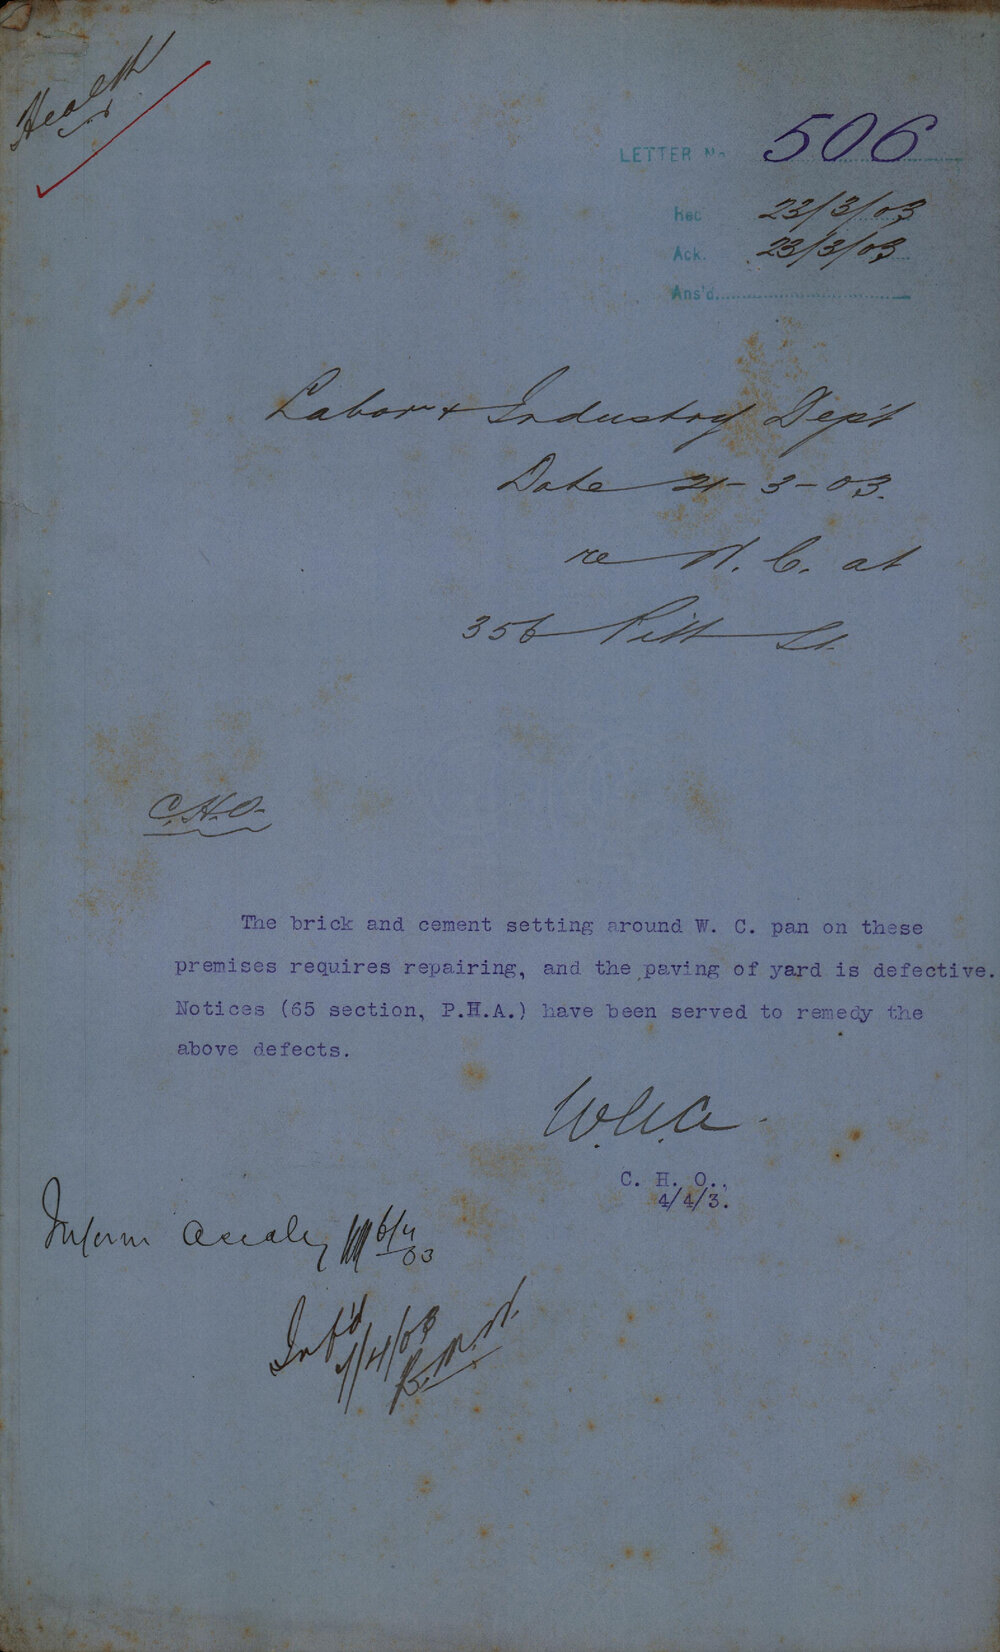 Health
LETTER No 506
Rec 23/3/03
Ack. 23/3/03
Ans'd.
Labour & Industry Dep't
Date 21-3-03.
re W. C. at
356 Pitt St.
C.H.O.
The brick and cement setting around W. C. pan on these
premises requires repairing, and the paving of yard is defective.
Notices (65 section, P.H.A.) have been served to remedy the
above defects.
W.G.A.
C. H. O..
4/4/3.
Inform 6/4/03
Inf'd
7/4/03